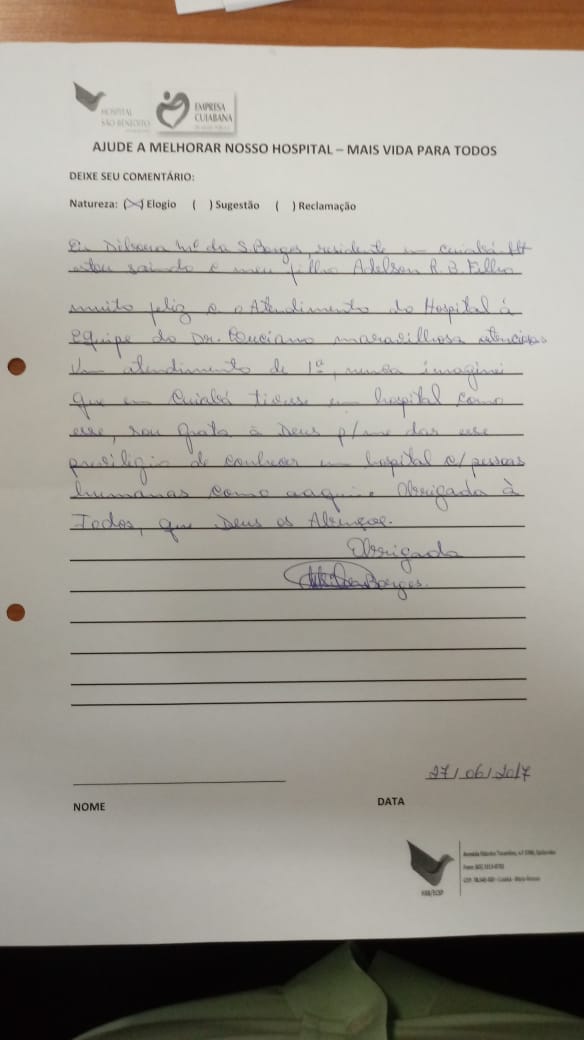 HOSPITAL
SÃO BENEDITO
EMPRESA
CUIABANA
AJUDE A MELHORAR NOSSO HOSPITAL – MAIS VIDA PARA TODOS
DEIXE SEU COMENTÁRIO:
Natureza: (X) Elogio ( ) Sugestão ( ) Reclamação
Eu Mª da S. Borges, residente em Cuiabá Mt
estou saindo e meu filho Adelson R. B. Filho
muito feliz c o Atendimento do Hospital à
equipe do Dr. Luciano maravilhosa atenciosa
Um atendimento de 1ª, nunca imaginei
que em Cuiabá tivesse um hospital como
esse, sou grata à Deus p/ me dar esse
privilégio de conhecer um hospital c/ pessoas
humanas como aqui. Obrigada à
Todos, que Deus os Abençoe.
Obrigada
Borges.
27/06/2017
NOME
DATA
HSB/ECSP